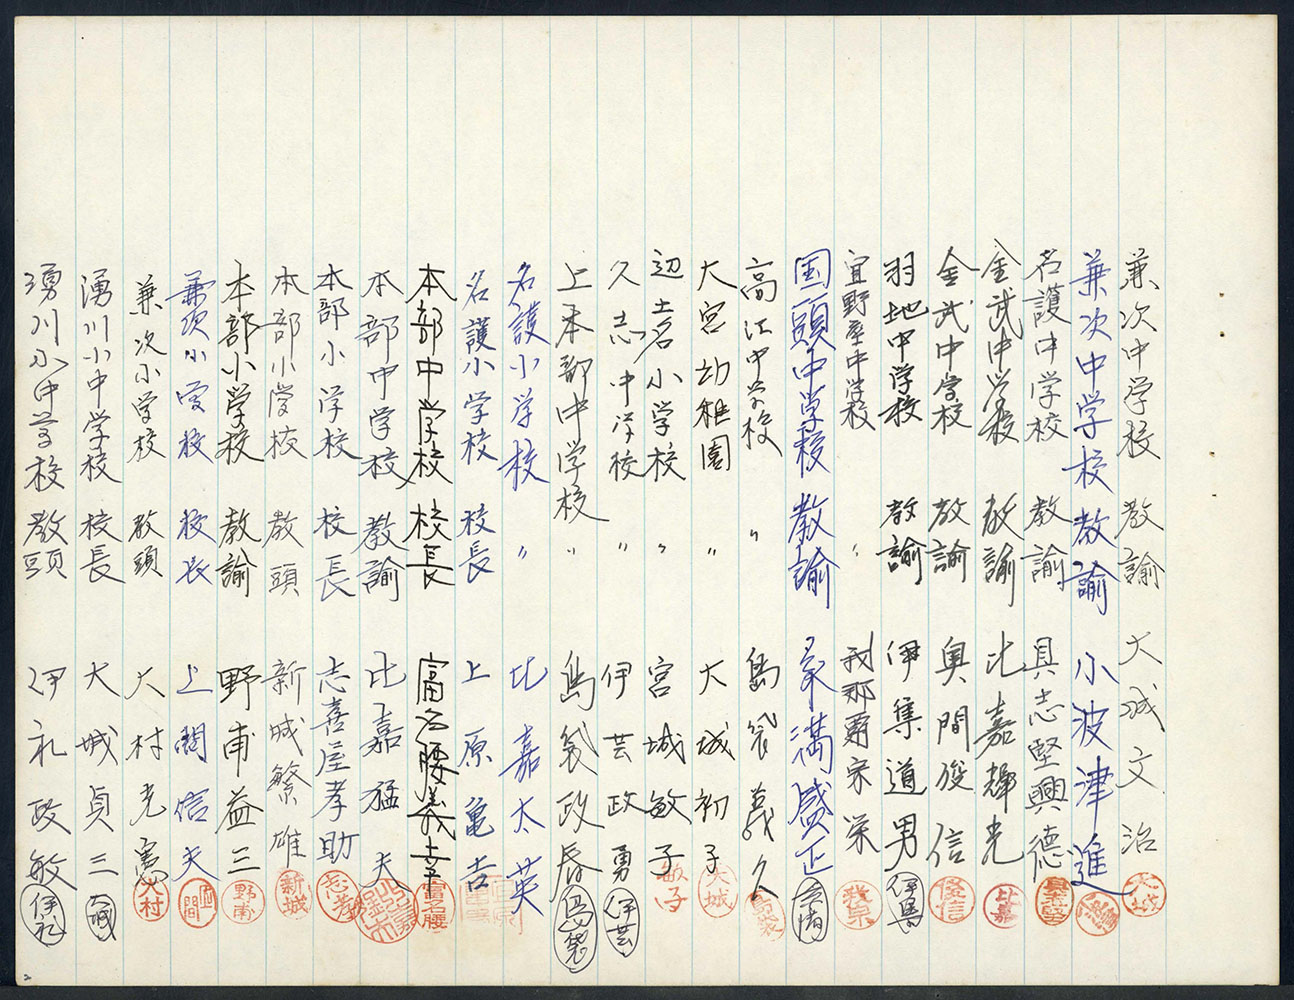 兼次中学校 教諭 大城文治 大城
兼次中学校 教諭 小波津進
名護中学校 教諭 具志堅興徳 具志堅
金武中学校 教諭 比嘉輝光 比嘉
金武中学校 教諭 奥間俊信 俊信
羽地中学校 教諭 伊集道男 伊集
宜野座中学校 〃 我那覇宗栄
国頭中学校 教諭 糸満盛正 糸満
高江中学校 〃 島袋義久 島袋
大宮幼稚園 〃 大城初子 大城
辺土名小学校 〃 宮城敏子 敏子
久志中学校 〃 伊芸政勇 伊芸
上本部中学校 〃 島袋政春 島袋
名護小学校 〃 比嘉太英
名護小学校 校長 上原亀吉
本部中学校 校長 富名腰義幸 富名腰
本部中学校 教諭 比嘉猛夫
本部小学校 校長 志喜屋孝助
本部小学校 教頭 新城繁雄 新城
本部小学校 教諭 野甫益三 野甫
兼次小学校 校長 上間信夫 上間
兼次小学校 教頭 大村光憲 大村
湧川小中学校 校長 大城貞三 大城
湧川小中学校 教頭 伊礼政敏 伊礼
2